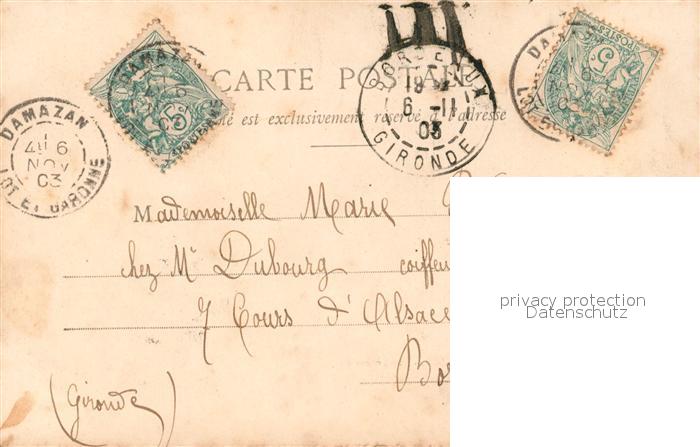 CARTE POSTALE
té est exclusivement réservé à l'adresse
DAMAZAN
6
NOV
03
LOT ET GARONNE
BORDEAUX
6 -11
03
GIRONDE
Mademoiselle Marie
chez Mr Dubourg coiffeu
7 Cours d'Alsace
Bo
(Gironde)
privacy protection
Datenschutz